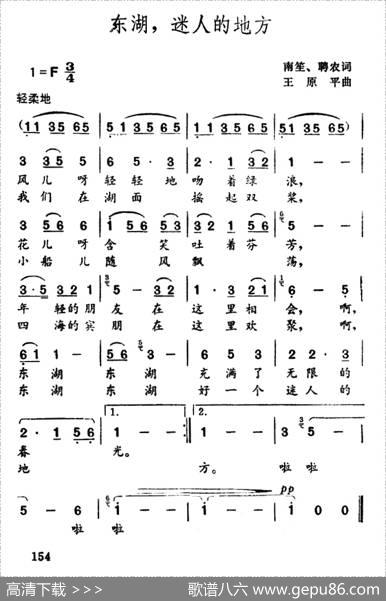 东湖，迷人的地方
1=F 3/4
南笙、聘农词
王原平曲
轻柔地
(1 1 3 5 6 5 | 1 1 3 5 6 5 | 5 1 3 5 6 5 | 5 1 3 5 6 5)
3 3 5 5 | 6 5·3 | 2·1 3 2 | 1 - - |
风儿呀轻轻地吻着绿浪，
我们在湖面摇起双桨，
3 5 6 6 | 1 5 6 5 3 | 2·5 3 2 | 5 - - |
花儿呀含笑吐着芬芳，
小船儿随风飘荡，
3·5 3 2 1 | 2 2·3 | 5 6 3 2 1 | 6 - 5 |
年轻的朋友在这里相会，啊，
四海的宾朋在这里欢聚，啊，
6 1 1 - | 5 6 3 - | 6 5 3 | 2 2·3 |
东湖东湖充满了无限的
东湖东湖好一个迷人的
1. 2.
2·1 5 6 | 1 - - | 1 - - :| 1 - - | 1 - - | 3 5 - |
春光。
地方。啦啦
pp
5 - 6 | 1 - - | 1 - - | 1 - - | 1 0 0 ‖
啦啦
154
高清下载 >>>
歌谱八六 www.gepu86.com